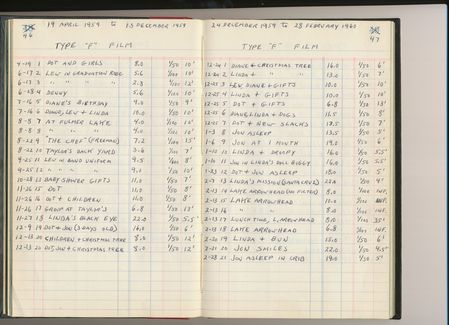 46
19 APRIL 1959 to 13 DECEMBER 1959
TYPE "F" FILM
4-19 1 DOT AND GIRLS 8.0 1/50 10'
6-17 2 LEW IN GRADUATION ROBE 5.6 1/00 10'
6-17 3 " " " " 2.8 1/100 12'
6-18 4 DENNY 5.6 1/100 10'
7-16 5 DIANE'S BIRTHDAY 4.0 1/50 9'
7-16 6 DIANE, LEW + LINDA 10.0 1/50 10'
8-8 7 AT FULMER LAKE 4.0 12'
8-8 8 " " " 4.0 10'
8-22 9 THE "CHEF" (FREEMAN) 7.2 1/00 15'
8-22 10 TAYLOR'S BACK YARD 3.6 7'
9-25 11 LEW IN BAND UNIFORM 9.5 8'
9-25 12 " " " " 9.1 1/50 10'
10-28 13 BABY SHOWER GIFTS 11.0 1/50 7'
11-26 15 DOT 11.0 1/50 8'
11-26 16 DOT + CHILDREN 11.0 1/50 8'
11-26 17 GROUP AT TAYLOR'S 6.8 1/50 13'
11-27 18 LINDA'S BLACK EYE 22.0 1/50 5.5'
12-9 19 DOT + JON (3 DAYS OLD) 16.0 1/50 6'
12-13 20 CHILDREN + CHRISTMAS TREE 8.0 1/50 12'
12-13 20 DOT, JON + CHRISTMAS TREE 8.0 1/50 12'
47
24 DECEMBER 1959 to 28 FEBRUARY 1960
TYPE "F" FILM
12-24 1 DIANE + CHRISTMAS TREE 16.0 1/50 6'
12-24 2 LINDA + " " 13.0 1/50 7'
12-25 3 LEW, DIANE + GIFTS 10.0 1/50 10'
12-25 4 LINDA + GIFTS 10.0 1/50 10'
12-25 5 DOT + GIFTS 6.8 1/50 13'
12-26 6 DIANE, LINDA + DIGS 11.5 1/50 8'
7 DOT + NEW SLACKS 12.5 1/50 7'
1-3 8 JON ASLEEP 13.5 1/50 5'
1-6 9 JON AT 1 MONTH 19.0 1/50 6'
1-10 10 LINDA + DROOPY 16.0 1/50 5.5'
1-16 11 JON IN LINDA'S DOLL BUGGY 16.0 1/50 5.5'
1-23 12 DOT + JON ASLEEP 18.0 1/50 5'
2-7 13 LINDA'S MISSION 22A 1/50 4'
2-13 14 LAKE ARROWHEAD (NO FILTER) 8.0 1/100 INF.
2-13 15 LAKE ARROWHEAD 10.0 1/100 INF.
2-13 16 " " 8.0 1/100 INF.
2-13 17 LUNCH TIME, L. ARROWHEAD 8.0 1/100
2-13 18 LAKE ARROWHEAD 6.8 1/100 INF.
2-20 19 LINDA + BUN 15.0 1/50 6'
2-21 20 JON SMILES 22.0 1/50 4.5'
2-28 21 JON ASLEEP IN CRIB 19.0 1/50 5'